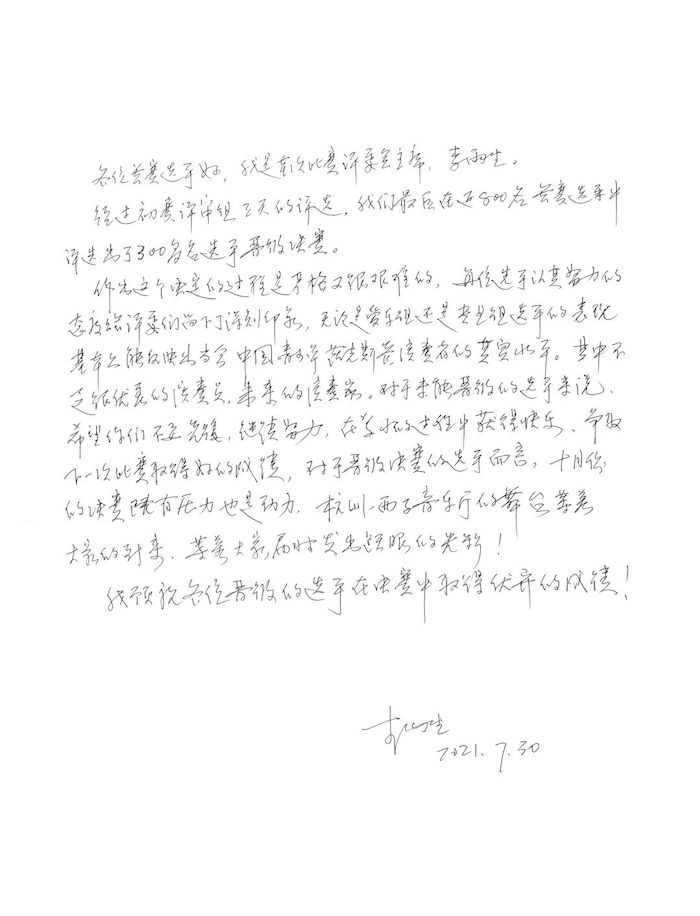 各位参赛选手好，我是本次比赛评委会主席，李雨生。
经过初赛评审组三天的评选，我们最后在近800名参赛选手中
评选出了300多名选手晋级决赛。
作出这个决定的过程是严格又很艰难的，每位选手认真努力的
态度给评委们留下了深刻印象，无论是爱乐组还是专业组选手的表现
基本上能反映出当今中国青少年萨克斯管演奏者的真实水平。其中不
乏很优秀的演奏员，未来的演奏家。对于未能晋级的选手来说，
希望你们不要气馁，继续努力，在学习的过程中获得快乐，争取
下一次比赛取得好的成绩，对于晋级决赛的选手而言，十月份
的决赛既有压力也是动力，杭州西子音乐厅的舞台等着
大家的到来，等着大家届时发出耀眼的光彩！
我预祝各位晋级的选手在决赛中取得优异的成绩！
李雨生
2021.7.30